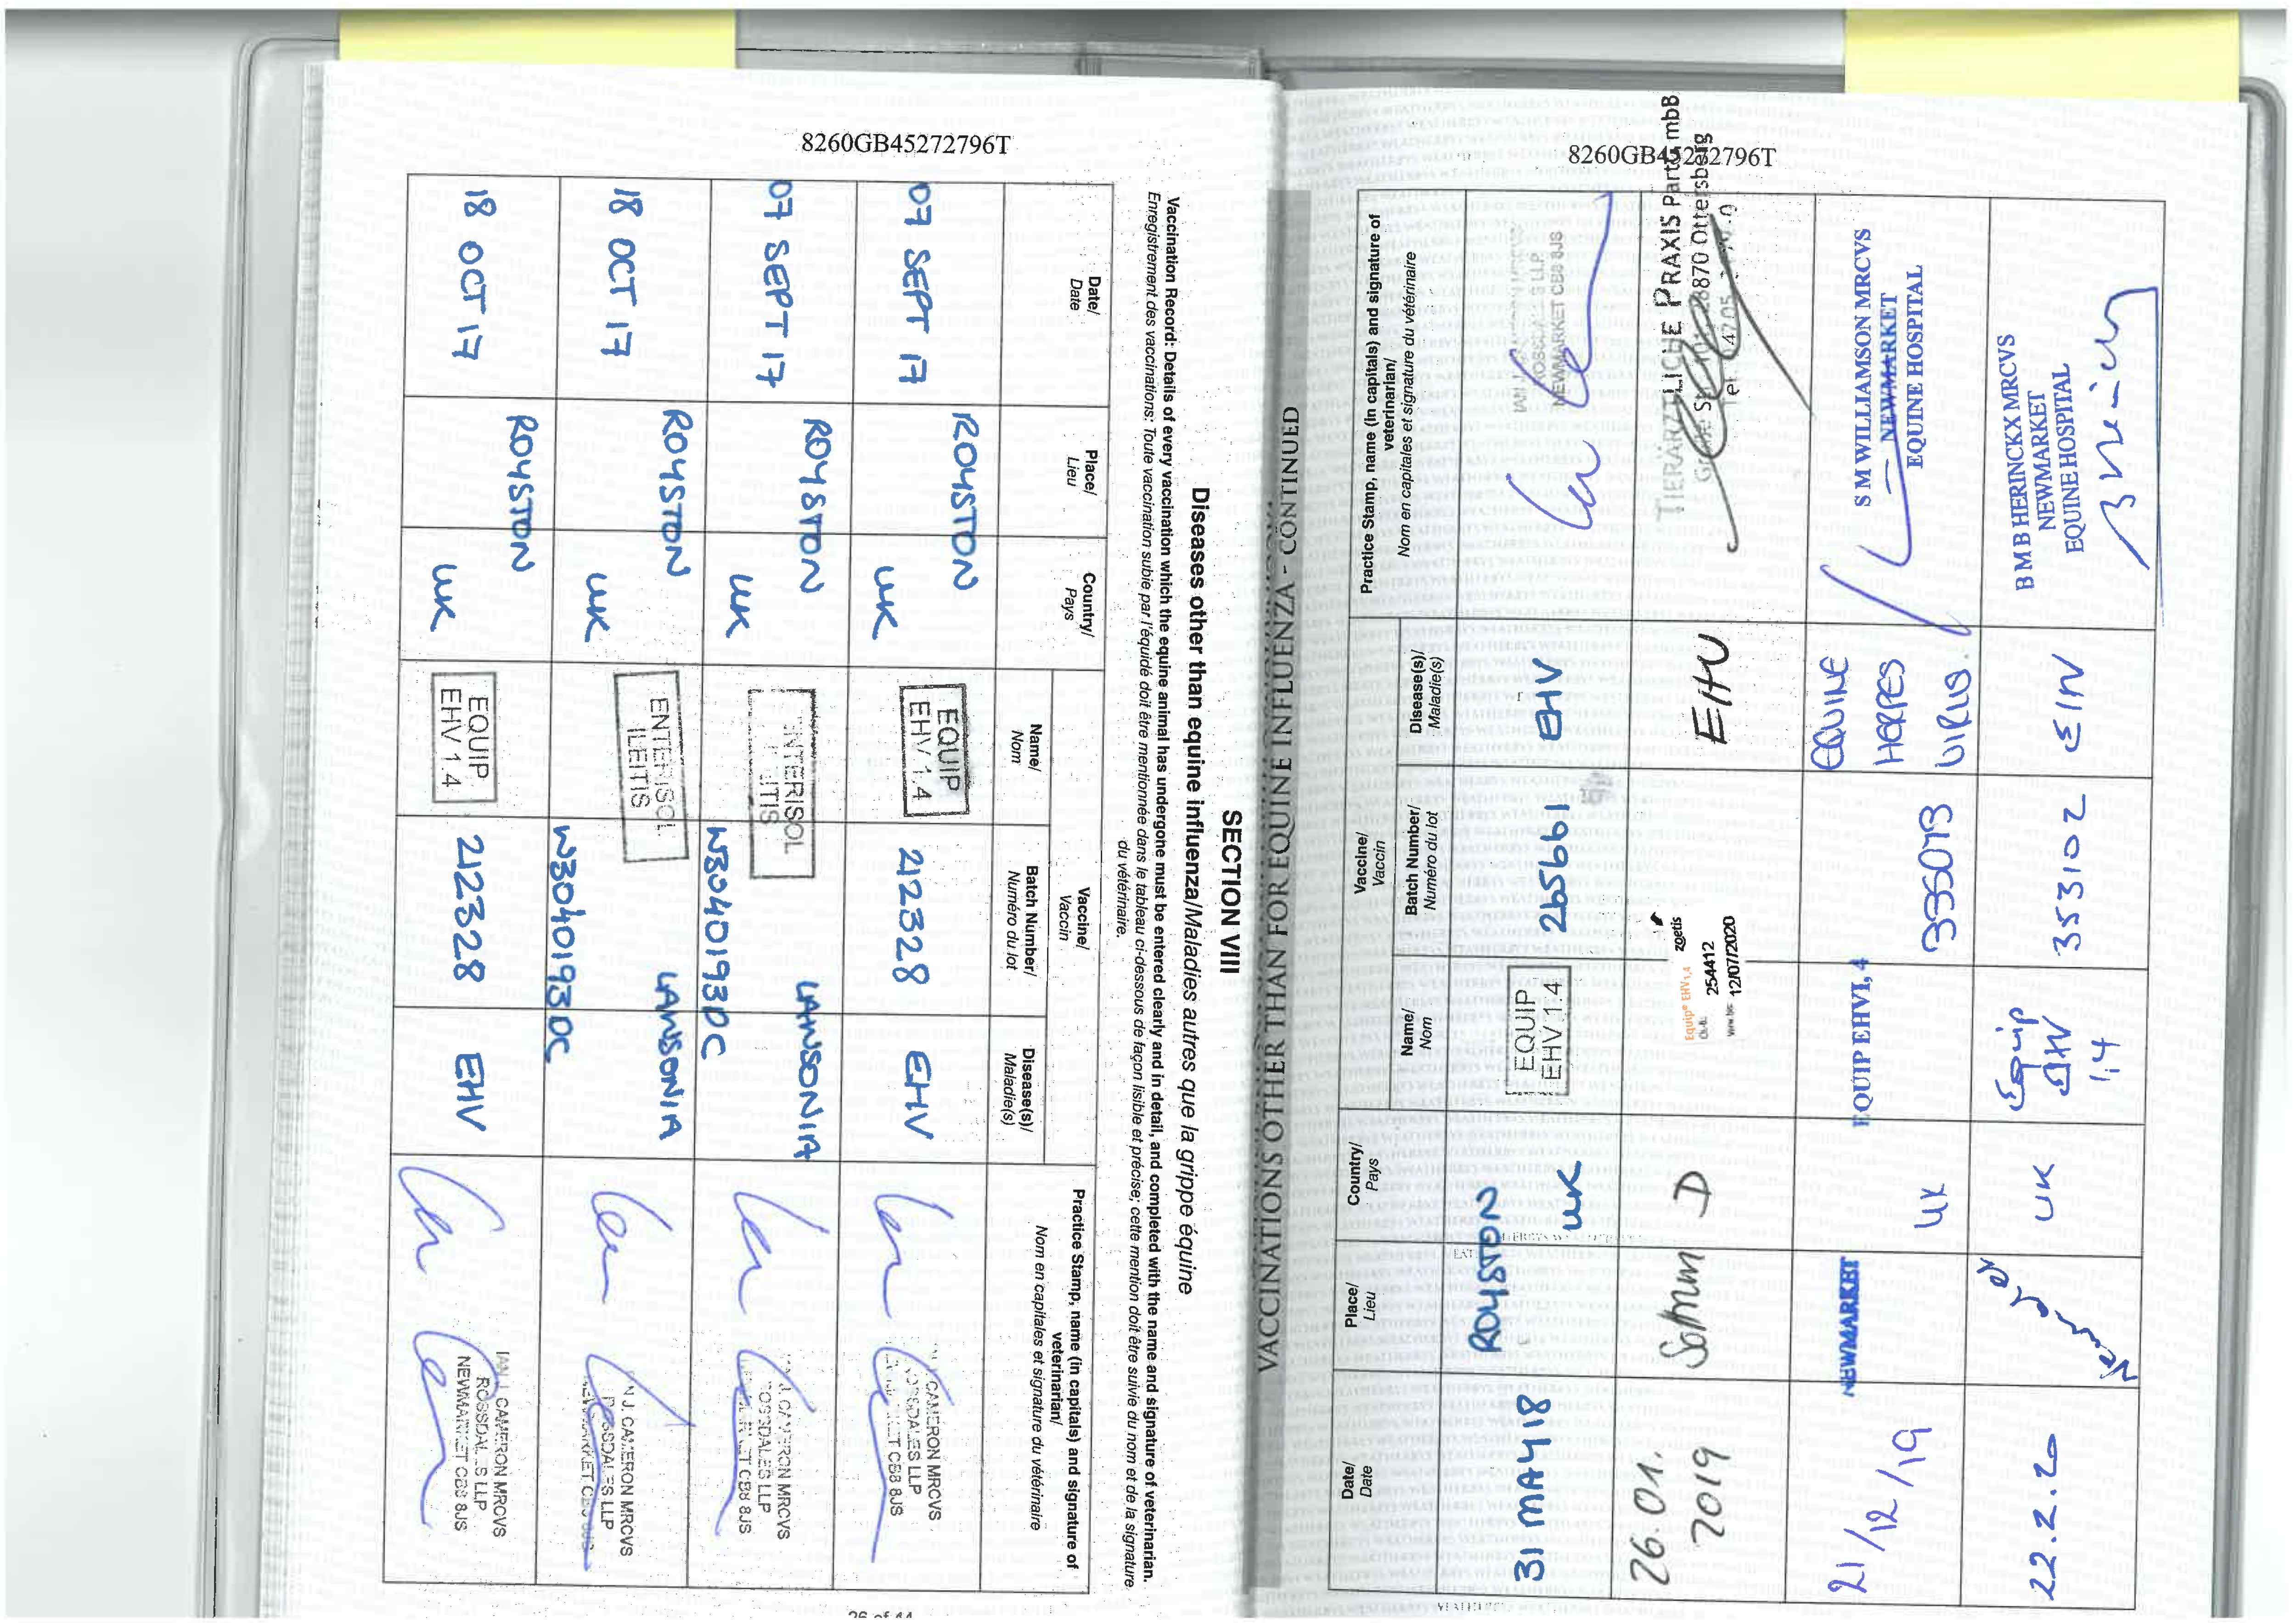 8260GB45272796T
SECTION VIII
Diseases other than equine influenza/Maladies autres que la grippe équine
Vaccination Record: Details of every vaccination which the equine animal has undergone must be entered clearly and in detail, and completed with the name and signature of veterinarian.
Enregistrement des vaccinations: Toute vaccination subie par l'équidé doit être mentionnée dans le tableau ci-dessous de façon lisible et précise; cette mention doit être suivie du nom et de la signature
du vétérinaire.
Date/
Date
Place/
Lieu
Country/
Pays
Vaccine/
Vaccin
Name/
Nom
Batch Number/
Numéro du lot
Disease(s)/
Maladie(s)
Practice Stamp, name (in capitals) and signature of
veterinarian/
Nom en capitales et signature du vétérinaire
07 SEPT 17
ROYSTON
UK
EQUIP
EHV 1.4
212328
EHV
CAMERON MRCVS
ROSSDALES LLP
CB8 8JS
07 SEPT 17
ROYSTON
UK
ENTERISOL
ILEITIS
N3040193DC
LAWSONIA
J. CAMERON MRCVS
ROSSDALES LLP
CB8 8JS
18 OCT 17
ROYSTON
UK
ENTERISOL
ILEITIS
N3040193DC
LAWSONIA
J. CAMERON MRCVS
ROSSDALES LLP
NEWMARKET
18 OCT 17
ROYSTON
UK
EQUIP
EHV 1.4
212328
EHV
IAN J CAMERON MRCVS
ROSSDALES LLP
NEWMARKET CB8 8JS
26 of 44
8260GB45272796T
VACCINATIONS OTHER THAN FOR EQUINE INFLUENZA - CONTINUED
Date/
Date
Place/
Lieu
Country/
Pays
Vaccine/
Vaccin
Name/
Nom
Batch Number/
Numéro du lot
Disease(s)/
Maladie(s)
Practice Stamp, name (in capitals) and signature of
veterinarian/
Nom en capitales et signature du vétérinaire
31 MAY 18
ROYSTON
UK
EQUIP
EHV 1.4
265661
EHV
ROSSDALES LLP
NEWMARKET CB8 8JS
26.01.
2019
Sottrum
D
Equip® EHV 1,4
zoetis
254412
12/07/2020
EHV
TIERÄRZTLICHE PRAXIS PartG mbB
28870 Ottersberg
21/12/19
NEWMARKET
UK
EQUIP EHV1,4
335073
EQUINE
HERPES
VIRUS.
S M WILLIAMSON MRCVS
NEWMARKET
EQUINE HOSPITAL
22.2.20
Newmarket
UK
Equip
EHV
1:4
353102
B M B HERINCKX MRCVS
NEWMARKET
EQUINE HOSPITAL